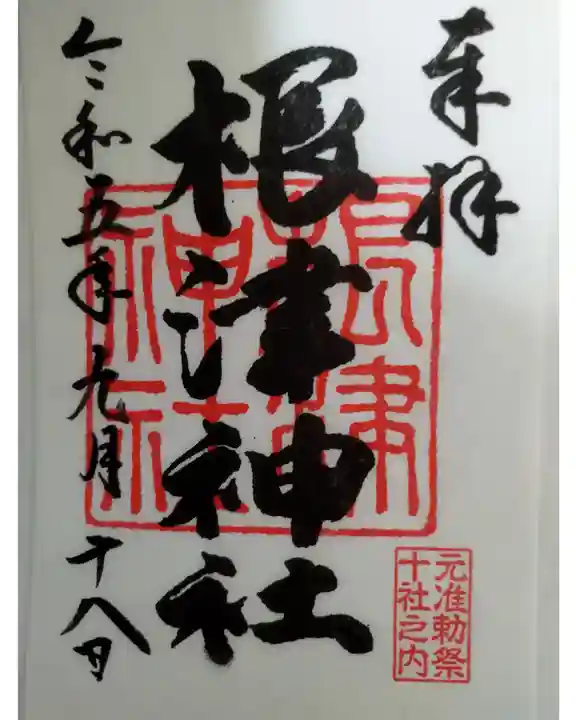 奉拝
根津神社
根津
神社
令和五年九月十八日
元准勅祭
十社之内